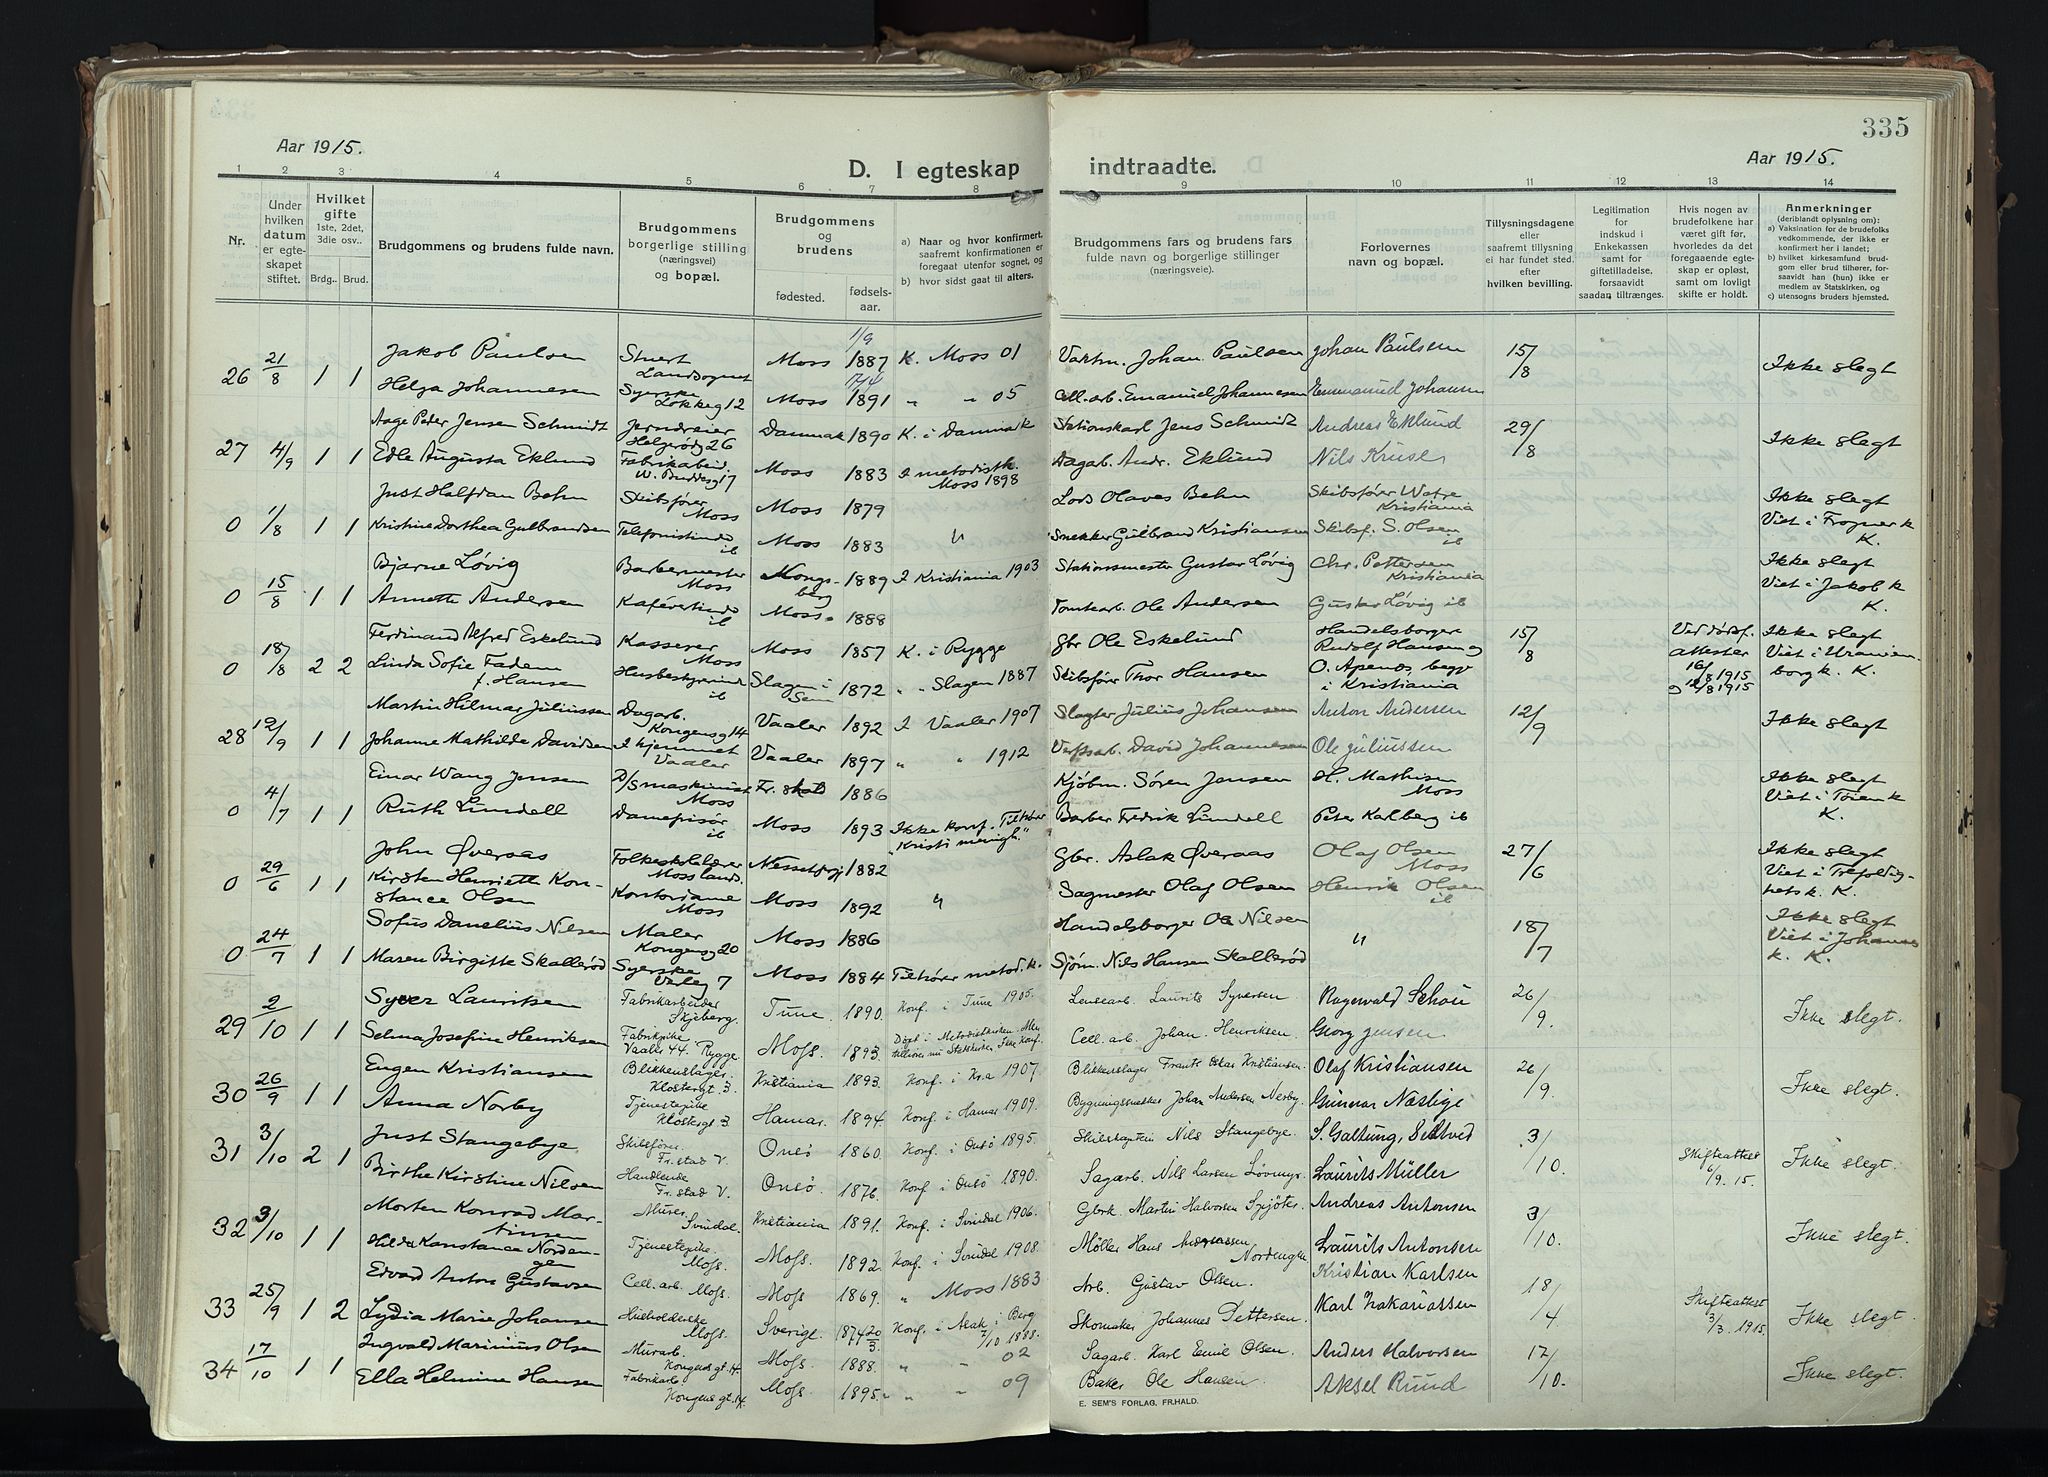 335
Aar 1915.
Aar 1915.
D. I egteskap indtraadte.
1 2 3 4 5 6 7 8 9 10 11 12 13 14
Nr.
Under hvilken datum er egteskapet stiftet.
Hvilket gifte 1ste, 2det, 3die osv.. Brdg.. Brud.
Brudgommens og brudens fulde navn.
Brudgommens borgerlige stilling (næringsvei) og bopæl.
Brudgommens og brudens fødested. fødsels-aar.
a) Naar og hvor konfirmert, saafremt konfirmationen er foregaat utenfor sognet, og
b) hvor sidst gaat til alters.
Brudgommens fars og brudens fars fulde navn og borgerlige stillinger (næringsveie).
Forlovernes navn og bopæl.
Tillysningsdagene eller saafremt tillysning ei har fundet sted, efter hvilken bevilling.
Legitimation for indskud i Enkekassen samt for giftetilladelse, forsaavidt saadan tiltrænges.
Hvis nogen av brudefolkene har været gift før, hvorledes da det foregaaende egteskap er opløst, samt om lovligt skifte er holdt.
Anmerkninger (deriblandt oplysning om):
a) Vaksination for de brudefolks vedkommende, der ikke er konfirmert her i landet;
b) hvilket kirkesamfund brudgom eller brud tilhører, forsaavidt han (hun) ikke er medlem av Statskirken, og
c) utensogns bruders hjemsted.
26 21/8 1 1 Jakob Paulsen Stuert Landsognet Moss 1/9 1887 K. Moss 01 Vaktm. Johan Paulsen Johan Paulsen 15/8 Ikke slegt
Helga Johannesen Syerske Løkkeg 12 Moss 17/4 1891 " " 05 Cell. arb. Emanuel Johannesen Emmanuel Johansen
27 4/9 1 1 Aage Peder Jensen Schmidt Jerndreier Helgerødg 26 Danmak 1890 K. i Danmark Stationskarl Jens Schmidt Andreas Eklund 29/8 Ikke slegt
Edle Augusta Eklund Fabrikabeid. W. Buddesg 17 Moss 1883 I metodistk. Moss 1898 Dagarb. Andr. Eklund Nils Kruse
0 1/8 1 1 Just Halfdan Behn Skibsfører Moss Moss 1879 Lods Olaves Behn Skibsfører Kristiania Ikke slegt
Kristine Dorthea Gulbrandsen Telefonistinde ib Moss 1883 " Snekker Gulbrand Kristiansen Skibsf. S. Olsen ib Viet i Frogner k K.
0 15/8 1 1 Bjarne Løvig Barbermester Moss Kongsberg 1889 I Kristiania 1903 Stationsmester Gustav Løvig Chr. Pettersen Kristiania Ikke slegt
Annette Andersen Kaféveitinde ib Moss 1888 Tomtearb. Ole Andersen Gustav Løvig ib Viet i Jakob k K.
0 18/8 2 2 Ferdinand Alfred Eskelund Kasserer Moss Moss 1857 K. i Rygge Gbr Ole Eskelund Handelsborger Rudolf Hansen og 15/8 Ved dødsf. attester 16/8 1915 Ikke slegt
Linda Sofie Fadem f. Hansen Husbestyrerinde ib Slagen i Sem 1872 " " Slagen 1887 Skibsfører Thor Hansen O. Apenæs, begge i Kristiania 12/8 1915 Viet i Uranienborg k. K.
28 12/9 1 1 Martin Hilmar Juliussen Dagarb. Kongensg 14 Vaaler 1892 I Vaaler 1907 Slagter Julius Johansen Anton Andersen 12/9 Ikke slegt
Johanne Mathilde Davidsen I hjemmet Vaaler Vaaler 1897 " " 1912 Verftsarb. David Johannesen Ole Juliussen
0 4/7 1 1 Einar Wang Jensen D/Smaskinist Moss Fr. stad 1886 Kjøbm. Søren Jensen H. Mathisen Moss Ikke slegt
Ruth Lundell Damefrisør ib Moss 1893 Ikke konf. Tilhører "Kristi menigh." Barber Fredrik Lundell Peter Karlberg ib Viet i Tøien k K.
0 29/6 1 1 John Øveraas Folkeskolelærer Moss lands. Nesset prgj 1882 Gbr. Aslak Øveraas Olaf Olsen Moss 27/6 Ikke slegt
Kirsten Henriette Konstance Olsen Kontordame Moss Moss 1892 " Sagmester Olaf Olsen Henrik Olsen ib Viet i Trefoldighets k. K.
0 24/7 1 1 Sofus Danelius Nilsen Maler Kongensg 20 Moss 1886 Handelsborger Ole Nilsen " 18/7 Ikke slegt
Maren Birgitte Skallerød Syerske Valeg 7 Moss 1884 Tilhører metod. k. Sjøm. Nils Hansen Skallerød Viet i Johannes k. K.
29 2/10 1 1 Syver Lauritsen Fabrikarbeider Skjeberg. Tune. 1890. Konf. i Tune 1905. Lensearb. Laurits Syversen. Ragnvald Schou 26/9. Ikke slegt.
Selma Josefine Henriksen Fabrikpike Vaaler 44. Rygge. Moss. 1893. Døpt i Metodistkirken. Men tilhører nu Statskirken. Ikke konf. Cell. arb. Johan Henriksen. Georg Jensen
30 26/9 1 1 Eugen Kristiansen Blikkenslager. Klostergt. 3. Kristiania 1893. Konf. i Kr.a 1907. Blikkenslager Frants Oskar Kristiansen. Olaf Kristiansen 26/9. Ikke slegt.
Anna Norby Tjenestepike Klostergt 3. Hamar. 1894. Konf. i Hamar 1909. Bygningssnekker Johan Andersen Nerby. Gunnar Næslige
31 3/10 2 1 Just Stangebye Skibsfører. Fr. stad V. Onsø 1860. Konf. i Onsø 1895. Skibskaptein Nils Stangebye. S. Galtung, 3/10. Skifteattest 6/9. 15. Ikke slegt.
Birthe Kirstine Nilsen Handlende Fr. stad V. Onsø. 1876. Konf. i Onsø 1890. Sagarb. Nils Larsen Løvmyr. Laurits Müller
32 3/10 1 1 Morten Konrad Martinsen Murer Svindal. Kristiania 1891. Konf. i Svindal 1906. Gbrk. Martin Halvorsen Andreas Antonsen 3/10. Ikke slegt.
Hilda Konstance Nordengen Tjenestepike. Moss. Moss. 1892. Konf. i Svindal 1908. Møller Hans Nordengen Laurits Antonsen
33 25/9 1 2 Edvard Anton Gustavsen Cell. arb. Moss. Moss. 1869. " Moss 1883 Arb. Gustav Olsen. Kristian Karlsen 18/4 Skifteattest 3/3. 1915. Ikke slegt.
Lydia Marie Johansen Husholderske Moss. Sverige. 1874 20/3. Konf. i Asak i Berg 7/10 1888. Skomaker Johannes Pettersen. Karl Zakariassen
34 17/10 1 1 Ingvald Marinius Olsen Murarb. Kongens gt. 14. Moss. 1888. " " 02 Sagarb. Karl Emil Olsen. Anders Halvorsen 17/10. Ikke slegt.
Ella Helmine Hansen Fabrikarb. Kongens gt. 14. Moss. 1895. " " 09 Baker Ole Hansen. Aksel Ruud
E. SEM'S FORLAG, FR.HALD.